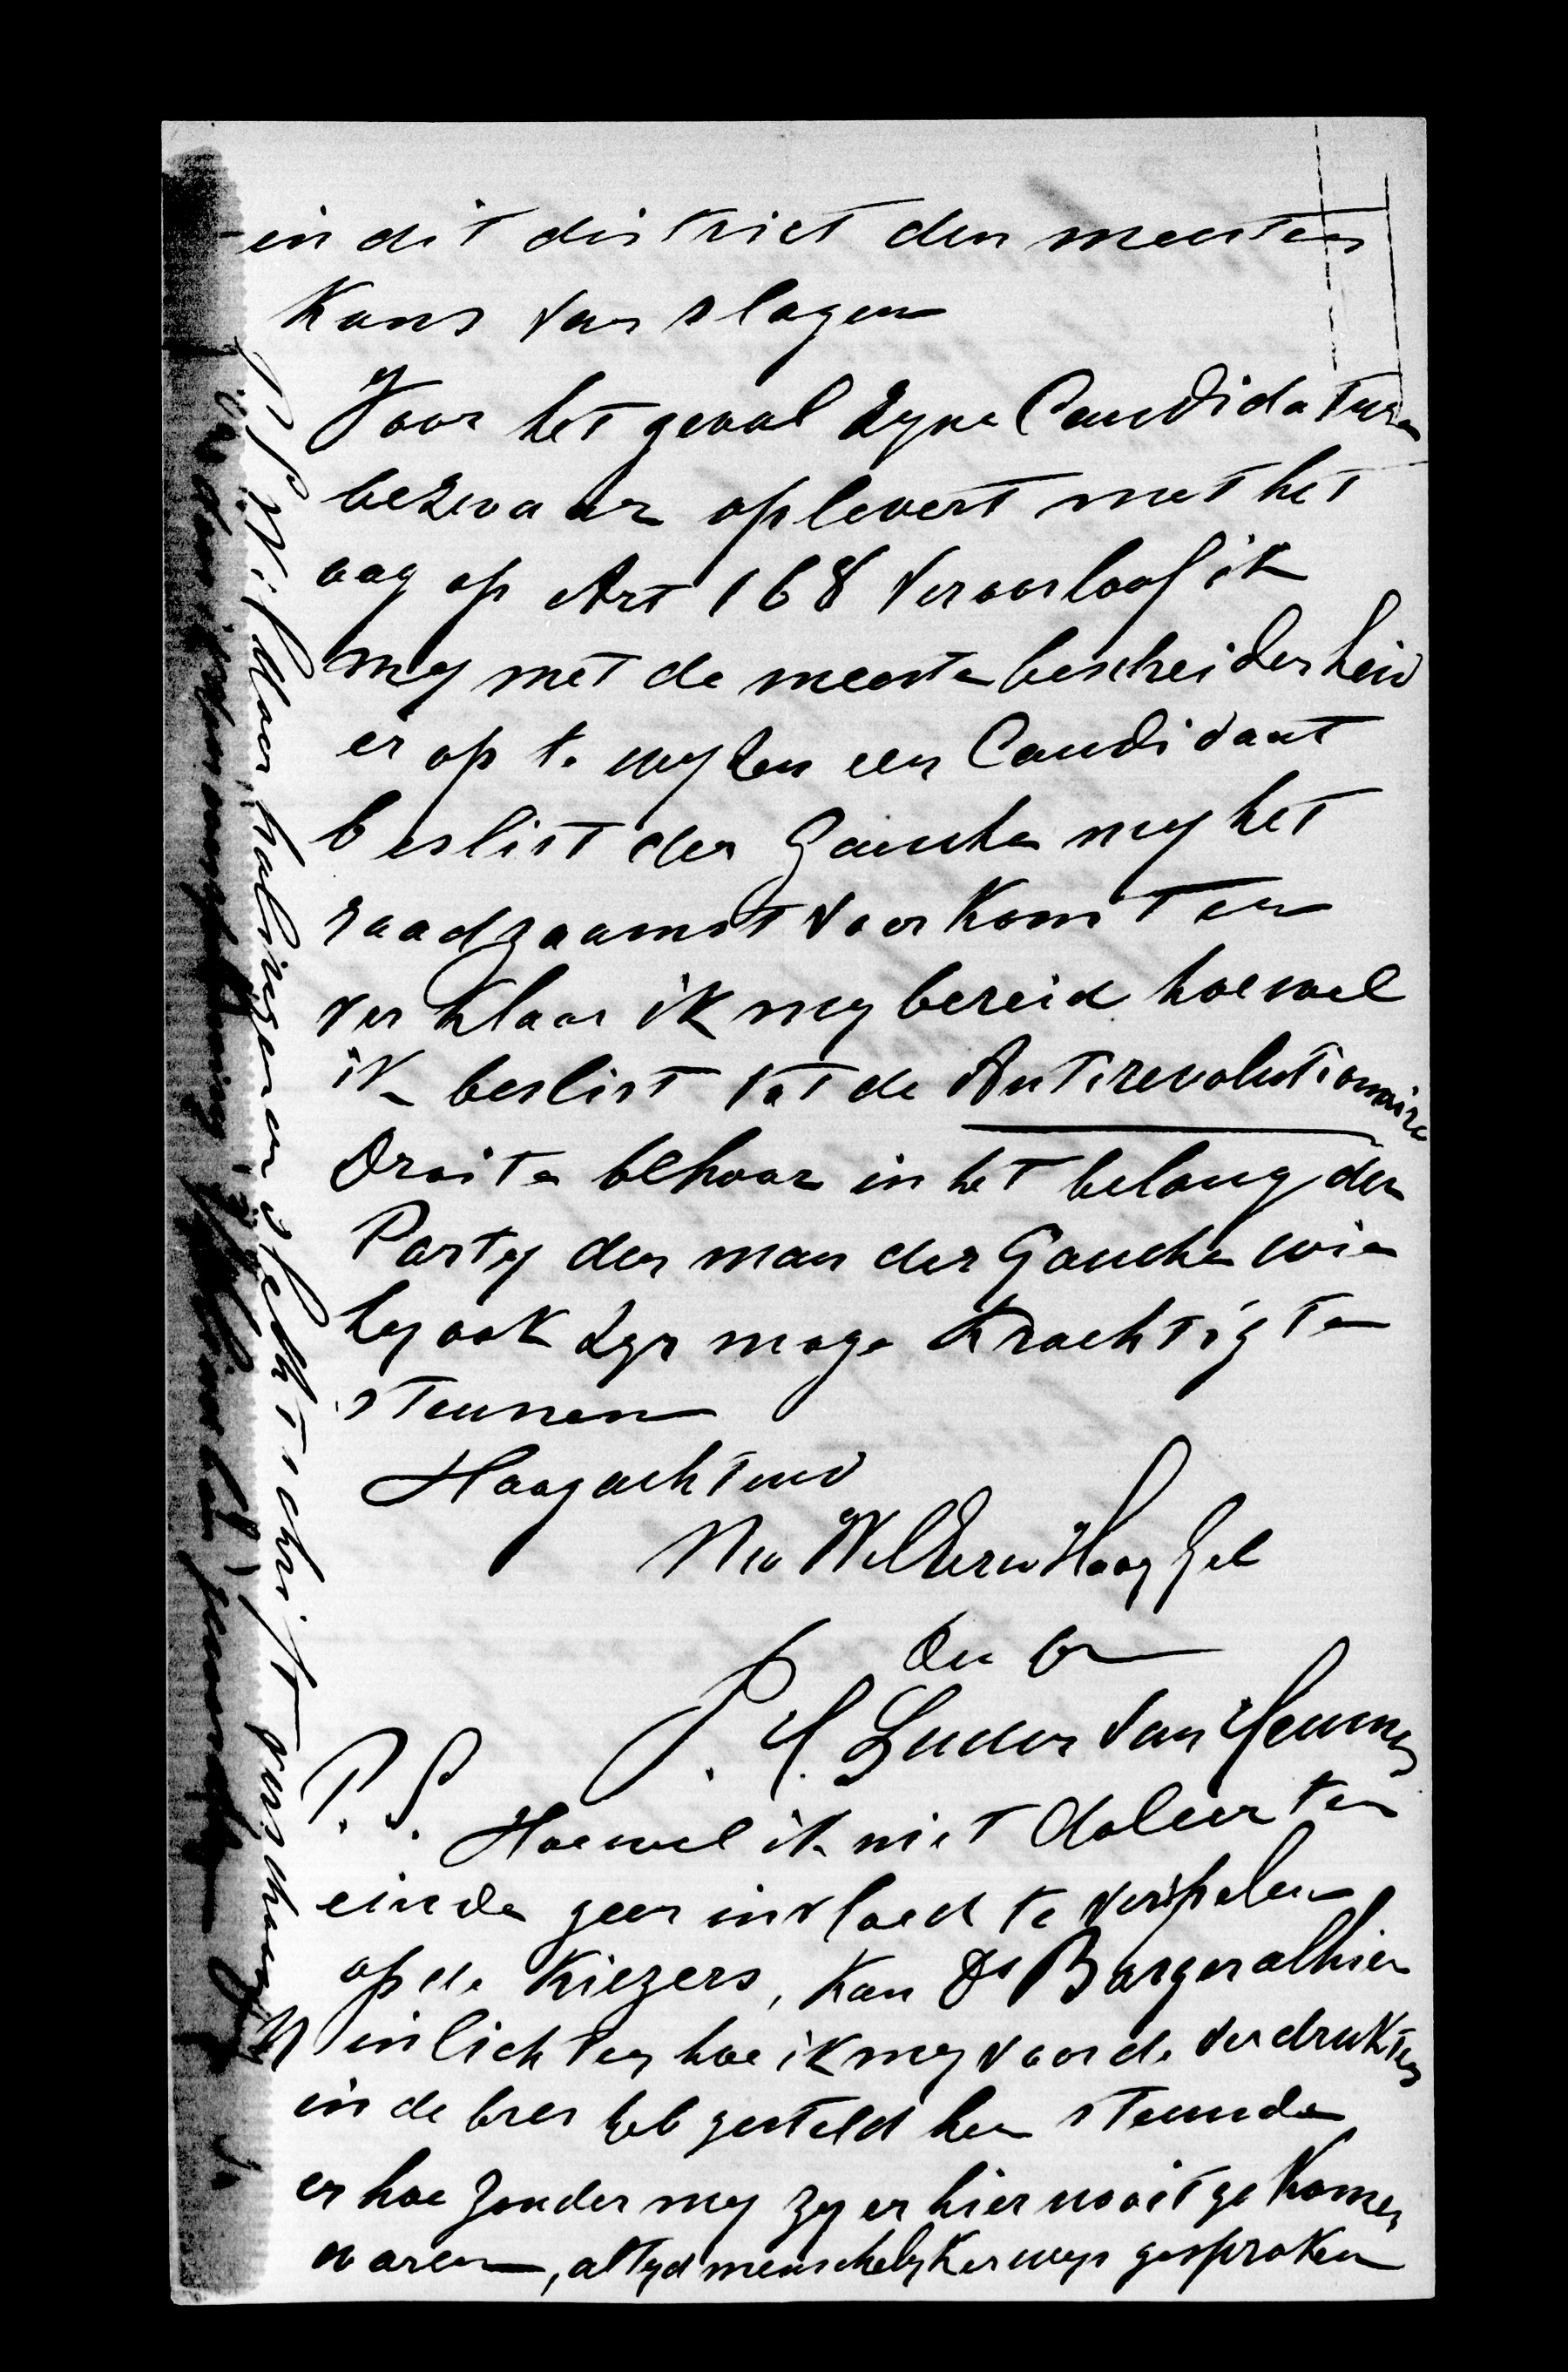 in dit district den meesten
Kans van slagen
Voor het geval Zyne Candidatuur
bezwaar oplevert met het
oog op Art 168 veroorloof ik
my met de meeste bescheidenheid
er op te wyzen een Candidaat
beslist der Gauche my het
raadzaamst voorkomt en
verklaar ik my bereid hoewel
ik beslist tot de Antirevolutionaire
Droite behoor in het belang der
Party den man der Gauche wie
hy ook Zyn moge Krachtig te
steunen
Hoogachtend
Uw WelEerw Hoog Gel
P. S. Luden van Heumen
P.S. Hoewel ik niet doleer ten
einde geen invloed te verspelen
op de Kiezers, Kan Ds Barger alhier
U inlichten hoe ik my voor de verdrukten
in de bres heb gesteld hen steunde
en hoe zonder my zy er hier nooit gekomen
waren, altyd menschelykerwys gesproken
P.S. Wil U doorhalingen en slecht schrift verschoonen